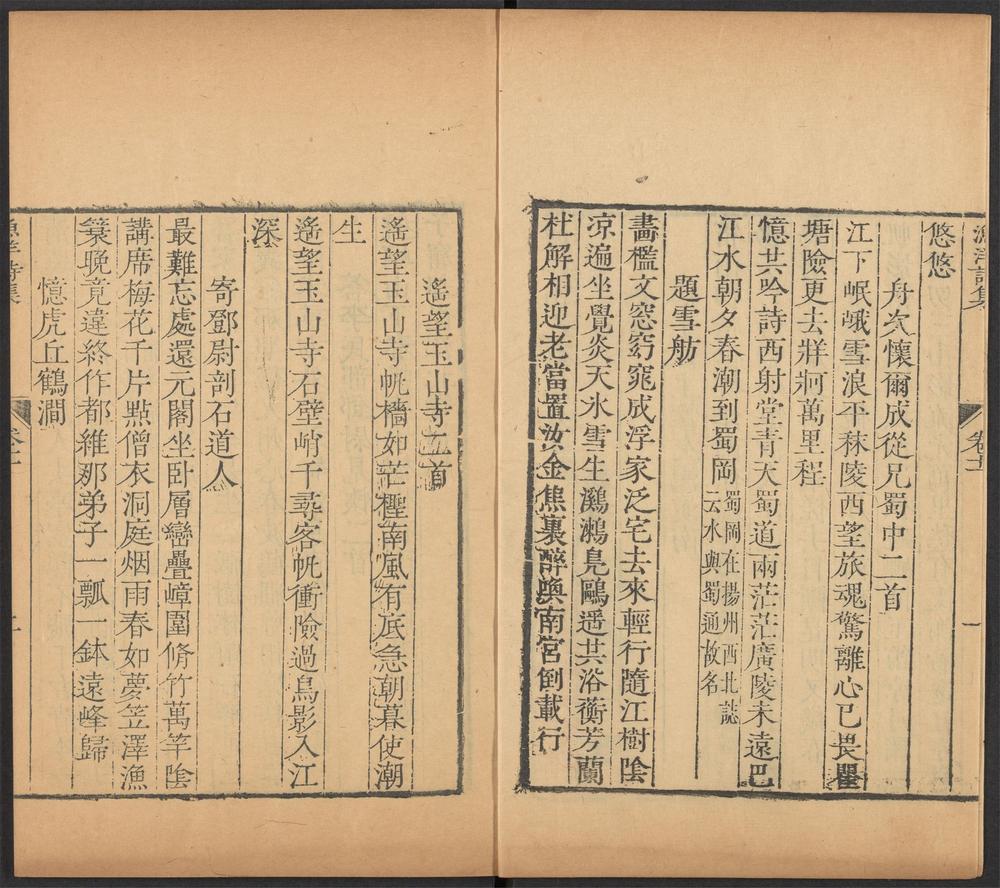 漁洋詩集
卷十一
一
悠悠
舟次懷爾成從兄蜀中二首
江下岷峨雪浪平秣陵西望旅魂驚離心已畏瞿
塘險更去牂牁萬里程
憶共吟詩西射堂青天蜀道兩茫茫廣陵未遠巴
江水朝夕春潮到蜀岡蜀岡在揚州西北誌
云水與蜀通故名
題雪舫
畵檻文窓窈窕成浮家泛宅去來輕行隨江樹陰
凉遍坐覺炎天氷雪生鸂鶒鳬鷗遥共浴蘅芳蘭
杜解相迎老當置汝金焦裏醉喚南宮倒載行
遙望玉山寺二首
遙望玉山寺帆檣如茫㮛南風有底急朝暮使潮
生
遙望玉山寺石壁峭千尋客帆衝險過鳥影入江
深
寄鄧尉剖石道人
最難忘處還元閣坐卧層巒疊嶂圍脩竹萬竿陰
講席梅花千片點僧衣洞庭烟雨春如夢笠澤漁
簑晚竟違終作都維那弟子一瓢一鉢遠峰歸
憶虎丘鶴澗
漁洋詩集
卷十一
二